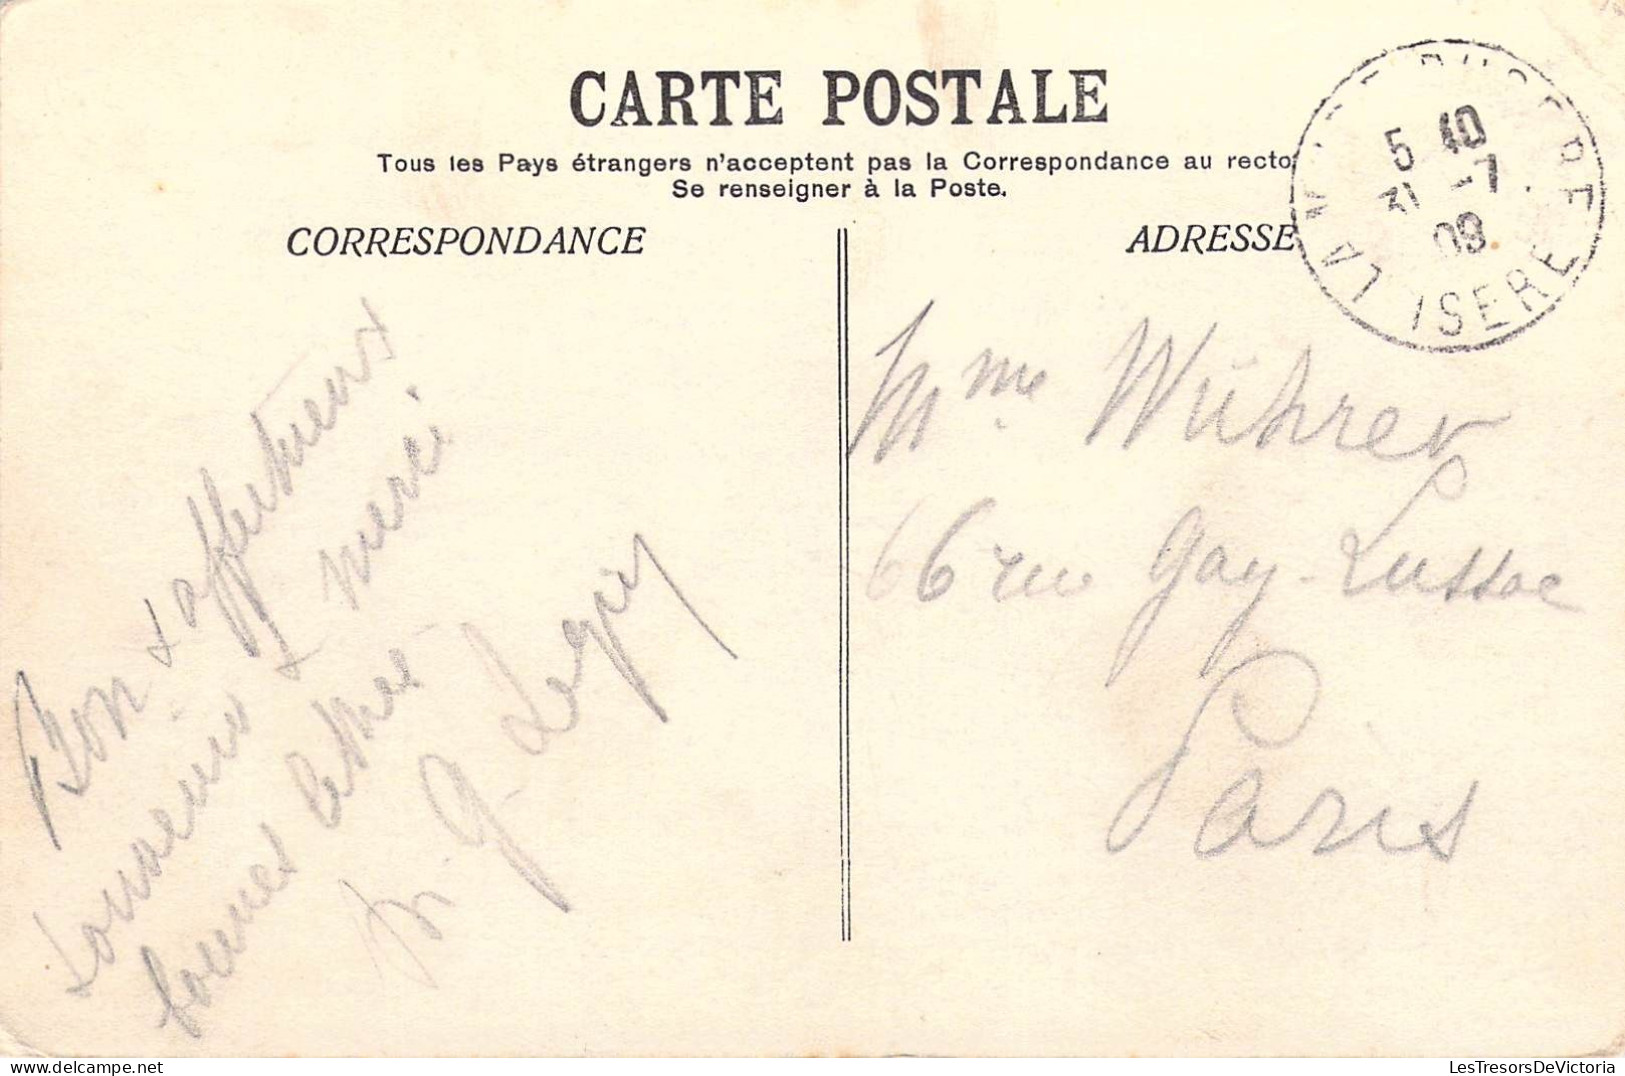 CARTE POSTALE
Tous les Pays étrangers n'acceptent pas la Correspondance au recto
Se renseigner à la Poste.
CORRESPONDANCE
ADRESSE
5 40
31 -7
09
LA
ISERE
Bon & affectueux
souvenir & merci
bonnes
G.
Mme Wührer
66 rue Gay-Lussac
Paris
LesTresorsDeVictoria